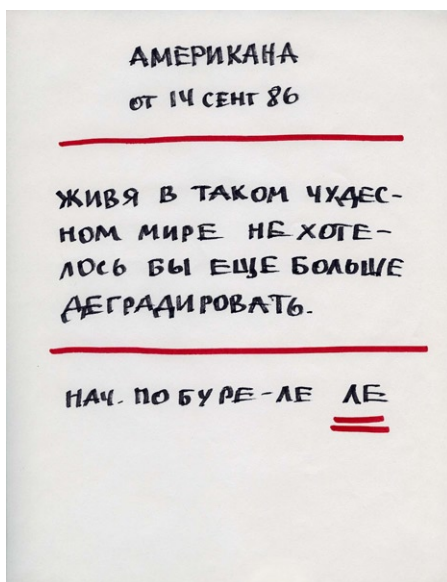 АМЕРИКАНА
ОТ 14 СЕНТ 86
ЖИВЯ В ТАКОМ ЧУДЕС-
НОМ МИРЕ НЕ ХОТЕ-
ЛОСЬ БЫ ЕЩЕ БОЛЬШЕ
ДЕГРАДИРОВАТЬ.
НАЧ. ПО БУРЕ-ЛЕ ЛЕ